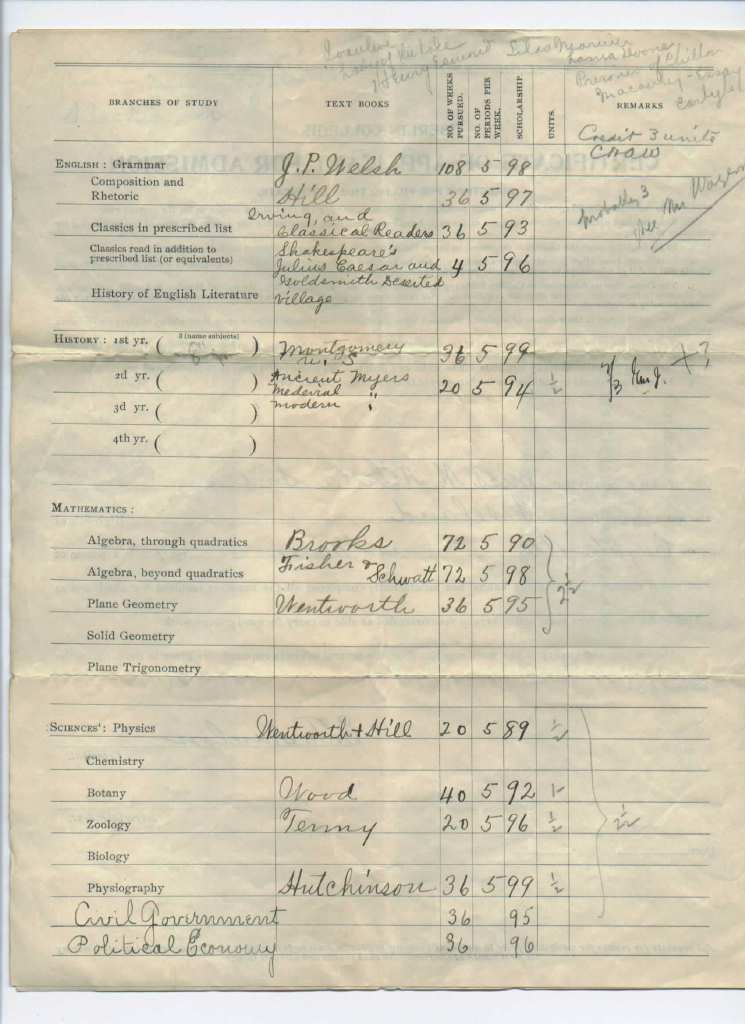 Ivanhoe Silas Marner
Lady of the Lake Lorna Doone
Henry Esmond Prisoner of Chillon
Macaulay - Essay
Carlyle
BRANCHES OF STUDY TEXT BOOKS NO. OF WEEKS PURSUED. NO. OF PERIODS PER WEEK. SCHOLARSHIP UNITS REMARKS
Credit 3 units
ENGLISH: Grammar J. P. Welsh 108 5 98
Composition and
Rhetoric Hill 36 5 97
probably 3
Irving, and
Classics in prescribed list Classical Readers 36 5 93
Classics read in addition to Shakespeare's
prescribed list (or equivalents) Julius Caesar and 4 5 96
Goldsmith Deserted
History of English Literature Village
3 (name subjects)
HISTORY: 1st yr. ( ) Montgomery 36 5 99
U. S
2d yr. ( ) Ancient Myers 20 5 94 ½ 2/3 +?
Medevial "
3d yr. ( ) Modern "
4th yr. ( )
MATHEMATICS:
Algebra, through quadratics Brooks 72 5 90
Algebra, beyond quadratics Fisher & Schwatt 72 5 98 2½
Plane Geometry Wentworth 36 5 95
Solid Geometry
Plane Trigonometry
SCIENCES': Physics Wentworth + Hill 20 5 89 ½
Chemistry
Botany Wood 40 5 92 1
Zoology Tenny 20 5 96 ½ 2½
Biology
Physiography Hutchinson 36 5 99 ½
Civil Government 36 95
Political Economy 36 96